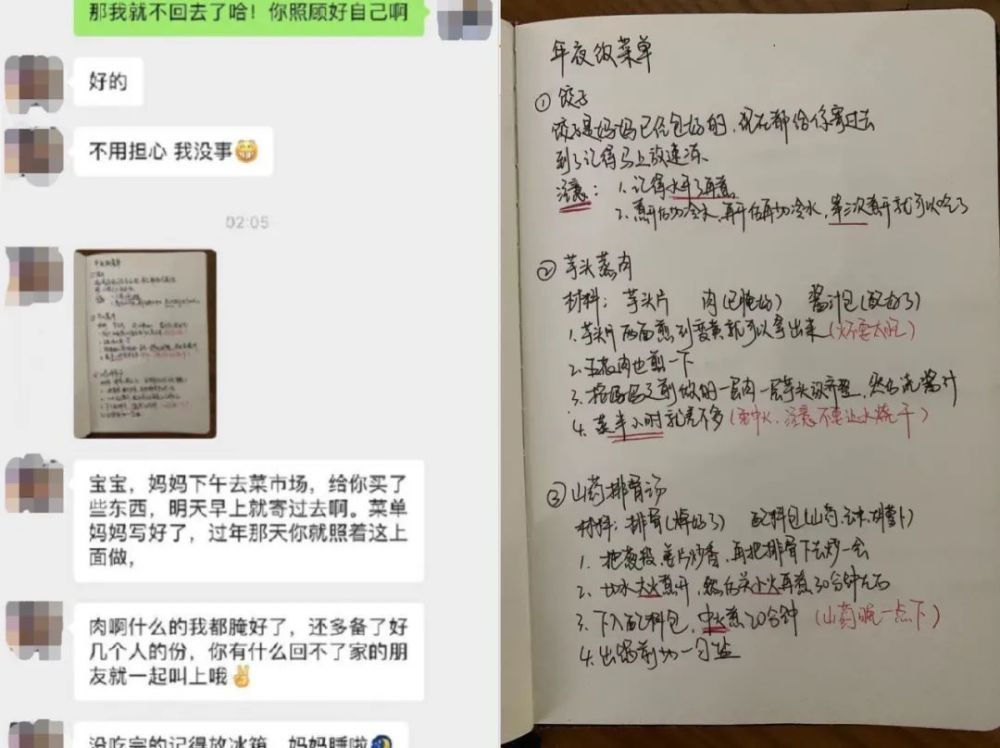 那我就不回去了哈！你照顾好自己啊
好的
不用担心 我没事
02:05
宝宝，妈妈下午去菜市场，给你买了
些东西，明天早上就寄过去啊。菜单
妈妈写好了，过年那天你就照着这上
面做，
肉啊什么的我都腌好了，还多备了好
几个人的份，你有什么回不了家的朋
友就一起叫上哦
没吃完的记得放冰箱，妈妈睡啦
年夜饭菜单
① 饺子
饺子是妈妈已经包好的，现在都给你寄过去
到了记得马上放速冻
注意：1.记得水开了再煮。
2.煮开后加冷水，再开后再加冷水，第三次煮开就可以吃了
② 芋头蒸肉
材料：芋头片 肉(已腌好) 酱汁包(配好了)
1.芋头片两面煎到变黄就可以拿出来(火不要太旺)
2.五花肉也煎一下
3.按妈妈之前做的一层肉一层芋头说齐整，然后浇酱汁
4.蒸半小时就差不多(要中火，注意不要让水烧干)
③ 山药排骨汤
材料：排骨(焯好了) 配料包(山药、玉米、胡萝卜)
1.把葱段姜片炒香，再把排骨下去炒一会
2.加水大火煮开，然后关小火再煮30分钟左右
3.下入配料包，中火煮20分钟(山药晚一点下)
4.出锅前加一勺盐